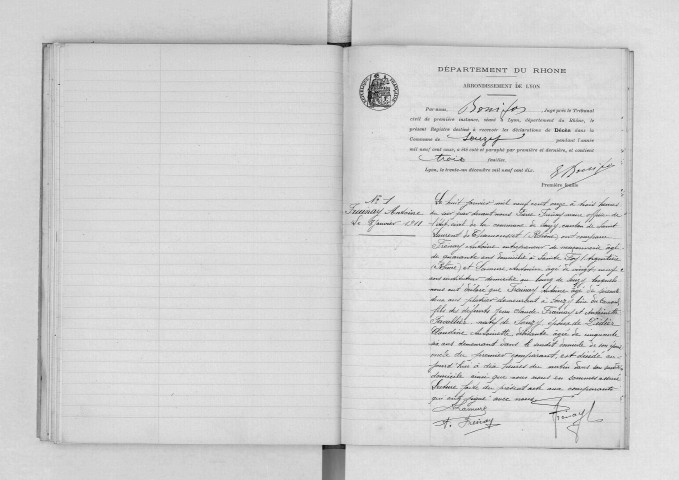 DÉPARTEMENT DU RHONE
ARRONDISSEMENT DE LYON
RÉPUBLIQUE FRANÇAISE
Par nous, Juge près le Tribunal
civil de première instance, séant à Lyon, département du Rhône, le
présent Registre destiné à recevoir les déclarations de Décès dans la
Commune de Souzy pendant l'année
mil neuf cent onze, a été coté et paraphé par première et dernière, et contient
trois feuillets.
Lyon, le trente-un décembre mil neuf cent dix.
Première feuille
N° 1
Frenay Antoine
Le 8 janvier 1911
Le huit janvier mil neuf cent onze à trois heures
du soir par devant nous Pierre Frenay maire officier de
l'état civil de la commune de Souzy canton de Saint
Laurent de Chamousset (Rhône) ont comparu
Frenay Antoine entrepreneur de maçonnerie âgé
de quarante ans domicilié à Sainte Foy l'Argentière
(Rhône) et Lamure Antoine âgé de vingt neuf
ans instituteur domicilié au bourg de Souzy lesquels
nous ont déclaré que Frenay Antoine âgé de soixante
deux ans plâtrier demeurant à Souzy lieu
fils des défunts Jean Claude Frenay et Antoinette
natif de Souzy, époux de
Claudine Antoinette âgée de cinquante
six ans demeurant dans le susdit domicile de son
oncle du premier comparant, est décédé au
jourd'hui à dix heures du matin dans son susdit
domicile ainsi que nous nous en sommes assuré
Lecture faite du présent acte aux comparants
qui ont signé avec nous
Lamure
A. Frenay
Frenay